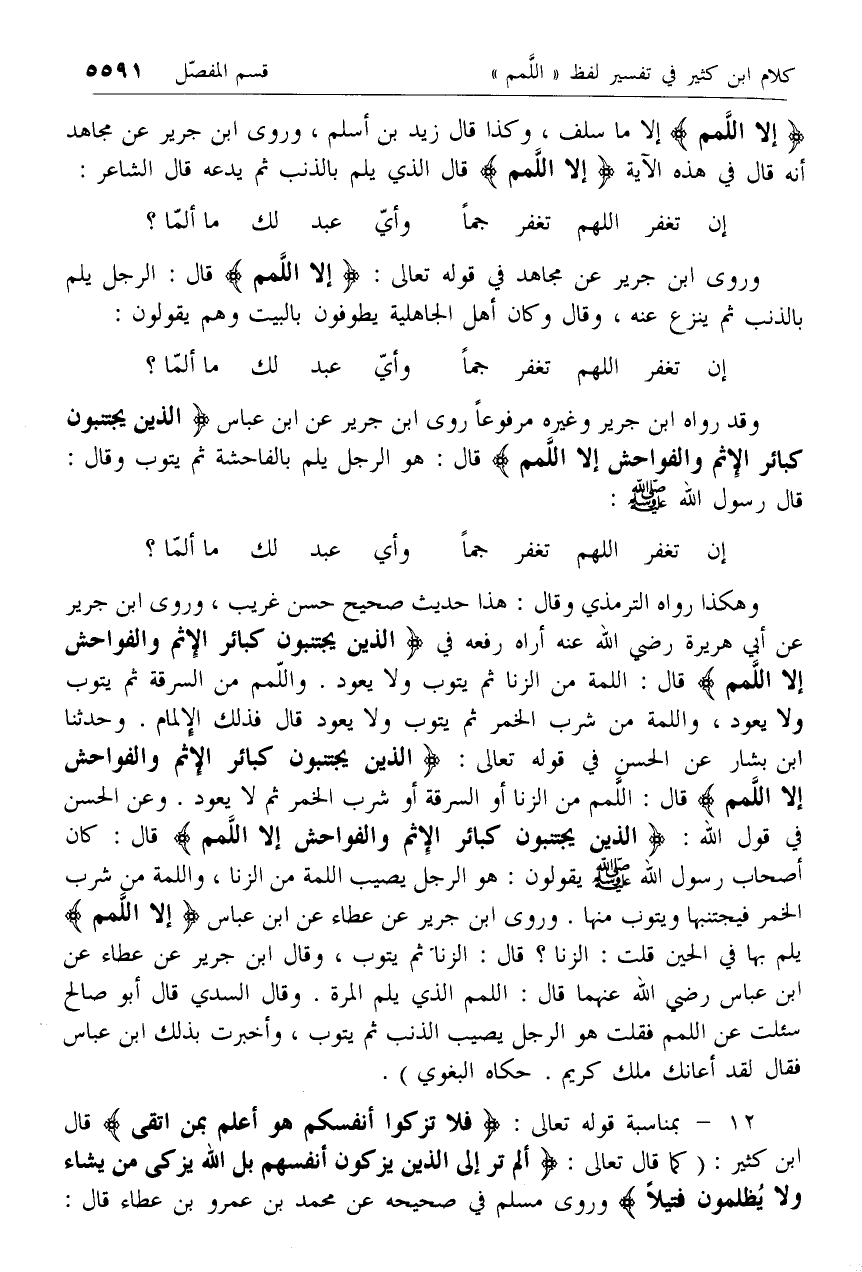 كلام ابن كثير في تفسير لفظ « اللَّمم » قسم المفصّل ٥٥٩١
﴿ إلا اللَّمم ﴾ إلا ما سلف ، وكذا قال زيد بن أسلم ، وروى ابن جرير عن مجاهد
أنه قال في هذه الآية ﴿ إلا اللَّمم ﴾ قال الذي يلم بالذنب ثم يدعه قال الشاعر :
إن تغفر اللهم تغفر جماً وأيّ عبد لك ما ألمّا ؟
وروى ابن جرير عن مجاهد في قوله تعالى : ﴿ إلا اللَّمم ﴾ قال : الرجل يلم
بالذنب ثم ينزع عنه ، وقال وكان أهل الجاهلية يطوفون بالبيت وهم يقولون :
إن تغفر اللهم تغفر جماً وأيّ عبد لك ما ألمّا ؟
وقد رواه ابن جرير وغيره مرفوعاً روى ابن جرير عن ابن عباس ﴿ الذين يجتنبون
كبائر الإثم والفواحش إلا اللَّمم ﴾ قال : هو الرجل يلم بالفاحشة ثم يتوب وقال :
قال رسول الله ﷺ :
إن تغفر اللهم تغفر جماً وأي عبد لك ما ألمّا ؟
وهكذا رواه الترمذي وقال : هذا حديث صحيح حسن غريب ، وروى ابن جرير
عن أبي هريرة رضي الله عنه أراه رفعه في ﴿ الذين يجتنبون كبائر الإثم والفواحش
إلا اللَّمم ﴾ قال : اللمة من الزنا ثم يتوب ولا يعود . واللّمم من السرقة ثم يتوب
ولا يعود ، واللمة من شرب الخمر ثم يتوب ولا يعود قال فذلك الإلمام . وحدثنا
ابن بشار عن الحسن في قوله تعالى : ﴿ الذين يجتنبون كبائر الإثم والفواحش
إلا اللَّمم ﴾ قال : اللَّمم من الزنا أو السرقة أو شرب الخمر ثم لا يعود . وعن الحسن
في قول الله : ﴿ الذين يجتنبون كبائر الإثم والفواحش إلا اللَّمم ﴾ قال : كان
أصحاب رسول الله ﷺ يقولون : هو الرجل يصيب اللمة من الزنا ، واللمة من شرب
الخمر فيجتنبها ويتوب منها . وروى ابن جرير عن عطاء عن ابن عباس ﴿ إلا اللَّمم ﴾
يلم بها في الحين قلت : الزنا ؟ قال : الزنا ثم يتوب ، وقال ابن جرير عن عطاء عن
ابن عباس رضي الله عنهما قال : اللمم الذي يلم المرة . وقال السدي قال أبو صالح
سئلت عن اللمم فقلت هو الرجل يصيب الذنب ثم يتوب ، وأخبرت بذلك ابن عباس
فقال لقد أعانك ملك كريم . حكاه البغوي ) .
١٢ – بمناسبة قوله تعالى : ﴿ فلا تزكوا أنفسكم هو أعلم بمن اتقى ﴾ قال
ابن كثير : ( كما قال تعالى : ﴿ ألم تر إلى الذين يزكون أنفسهم بل الله يزكى من يشاء
ولا يُظلمون فتيلاً ﴾ وروى مسلم في صحيحه عن محمد بن عمرو بن عطاء قال :